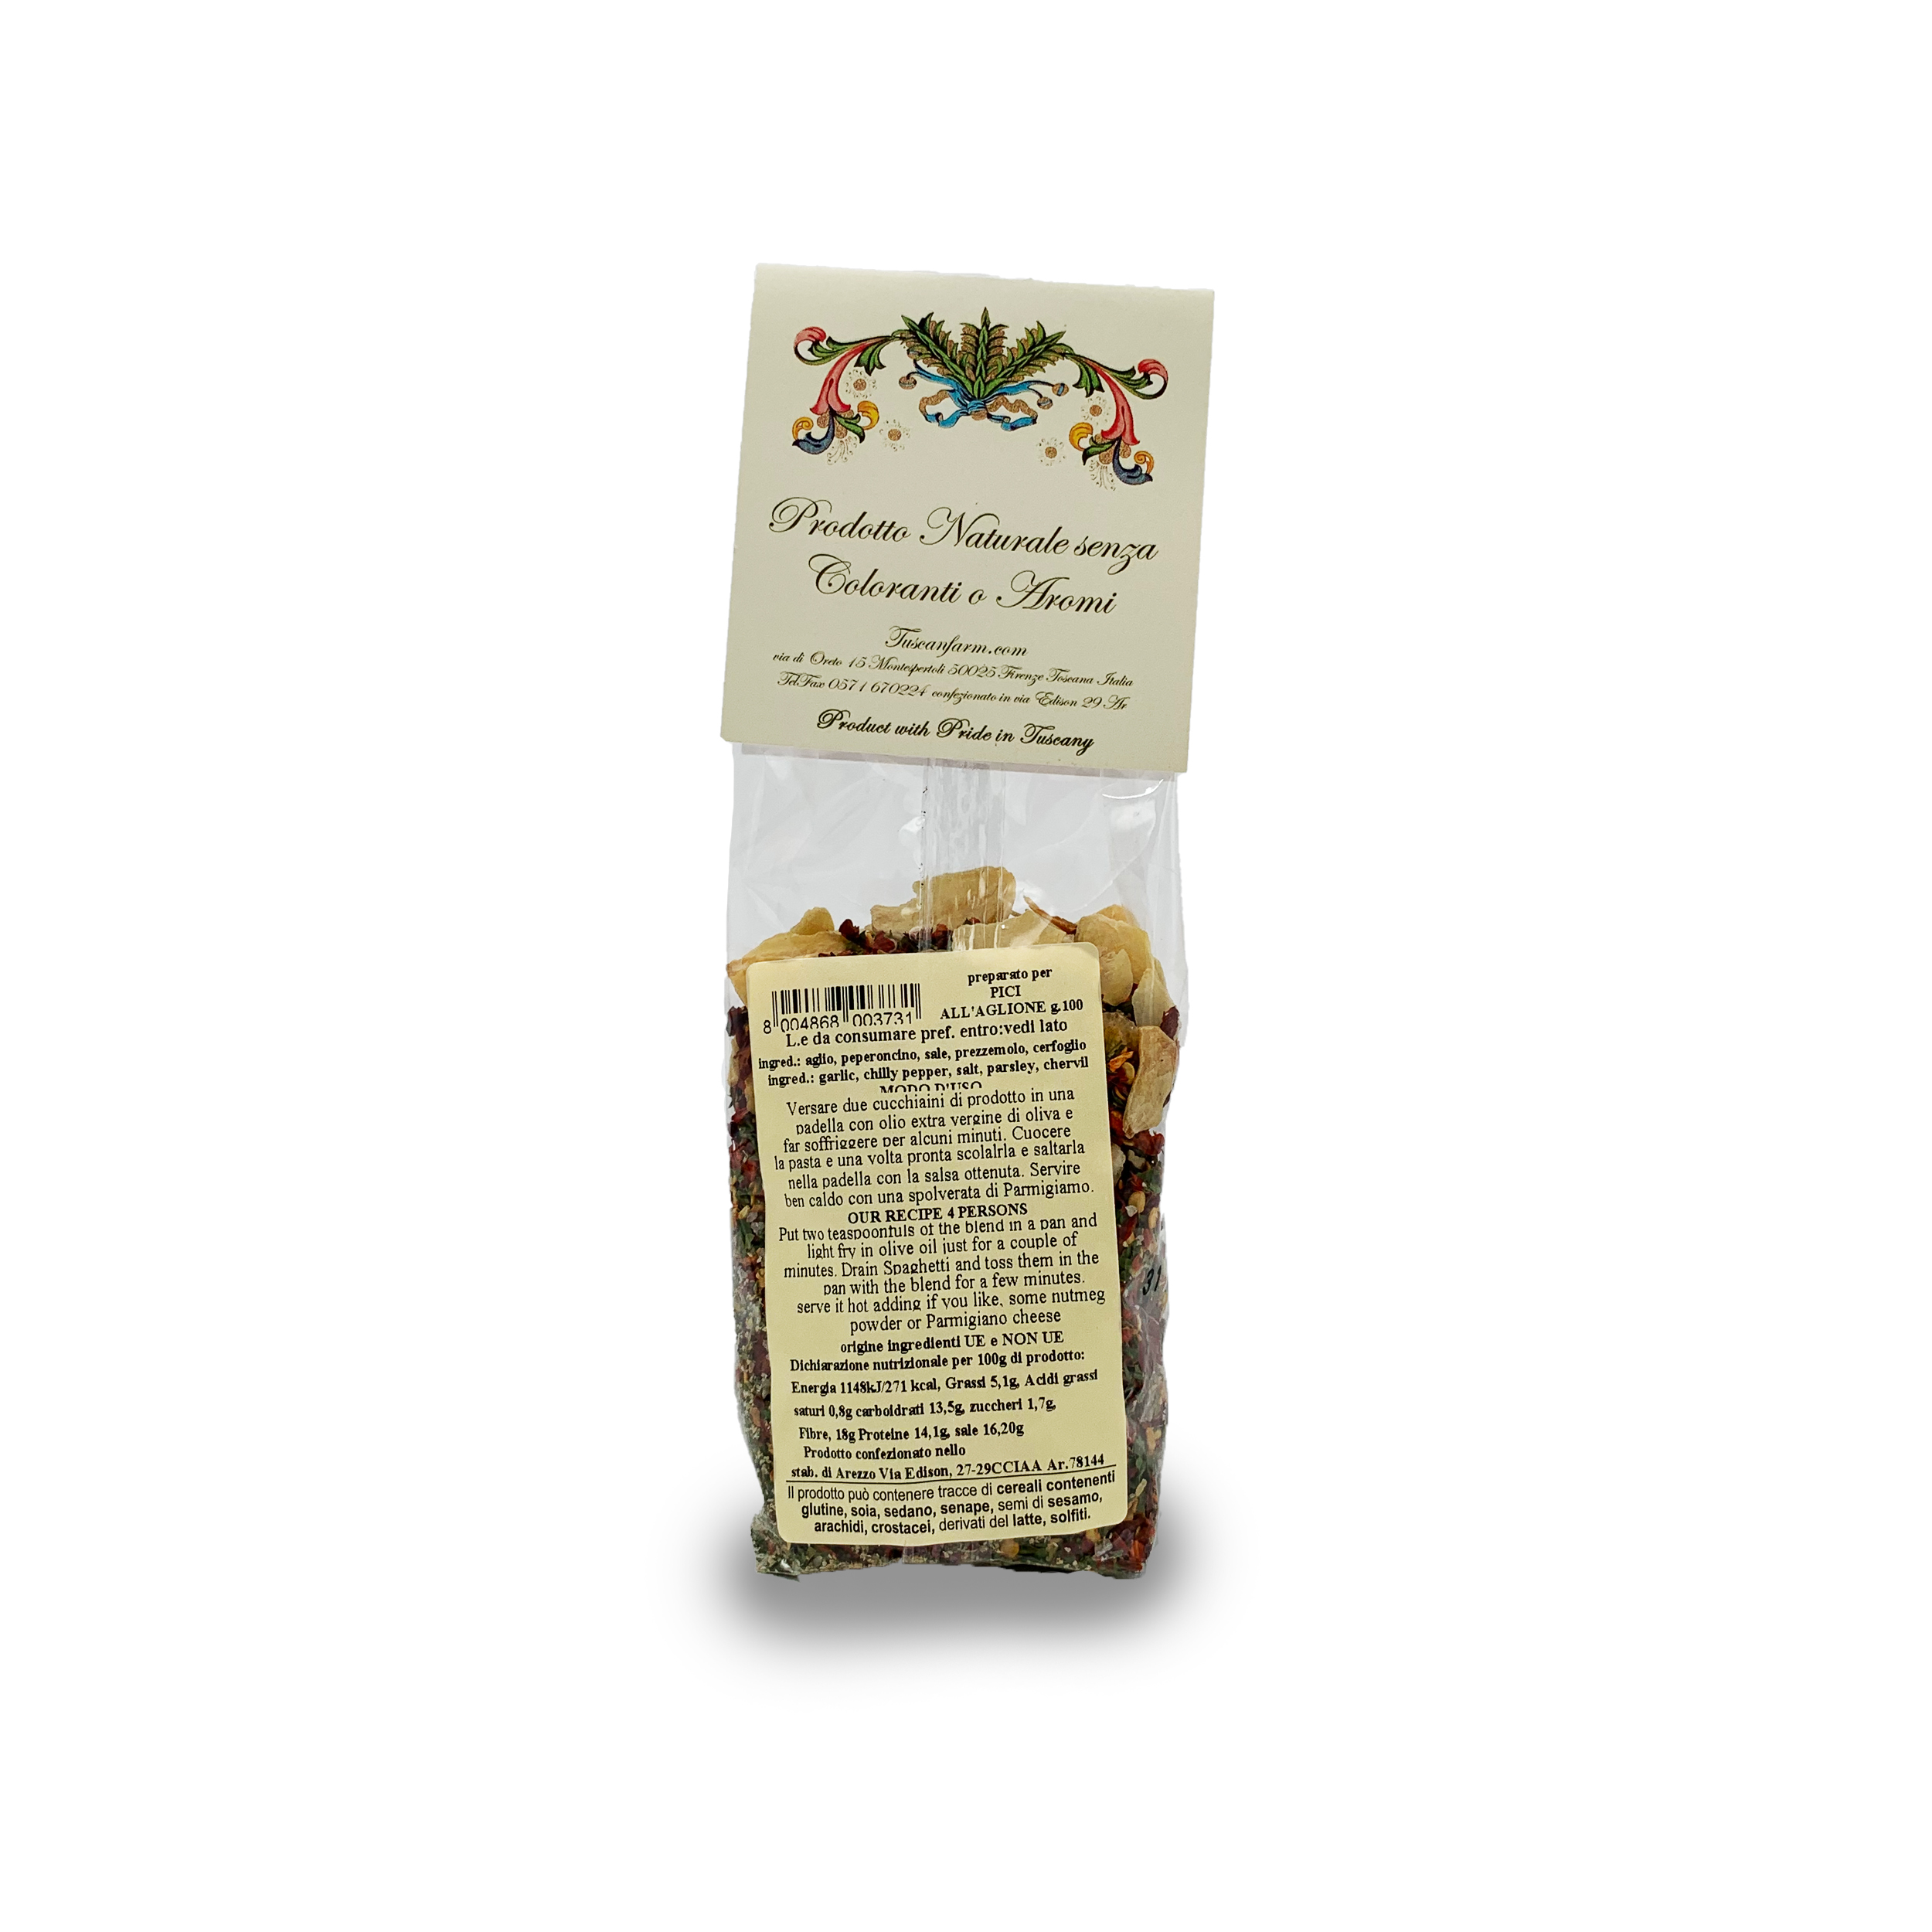 Prodotto Naturale senza
Coloranti o Aromi
Tuscanfarm.com
via di Oreto 15 Montespertoli 50025 Firenze Toscana Italia
Tel.Fax 0571 670224 confezionato in via Edison 29 Ar
Product with Pride in Tuscany
preparato per
PICI
ALL'AGLIONE g.100
8 004868 003731
L.e da consumare pref. entro:vedi lato
ingred.: aglio, peperoncino, sale, prezzemolo, cerfoglio
ingred.: garlic, chilly pepper, salt, parsley, chervil
MODO D'USO
Versare due cucchiaini di prodotto in una
padella con olio extra vergine di oliva e
far soffriggere per alcuni minuti. Cuocere
la pasta e una volta pronta scolalrla e saltarla
nella padella con la salsa ottenuta. Servire
ben caldo con una spolverata di Parmigiamo.
OUR RECIPE 4 PERSONS
Put two teaspoonfuls of the blend in a pan and
light fry in olive oil just for a couple of
minutes. Drain Spaghetti and toss them in the
pan with the blend for a few minutes.
serve it hot adding if you like, some nutmeg
powder or Parmigiano cheese
origine ingredienti UE e NON UE
Dichiarazione nutrizionale per 100g di prodotto:
Energia 1148kJ/271 kcal, Grassi 5,1g, Acidi grassi
saturi 0,8g carboidrati 13,5g, zuccheri 1,7g,
Fibre, 18g Proteine 14,1g, sale 16,20g
Prodotto confezionato nello
stab. di Arezzo Via Edison, 27-29CCIAA Ar.78144
Il prodotto può contenere tracce di cereali contenenti
glutine, soia, sedano, senape, semi di sesamo,
arachidi, crostacei, derivati del latte, solfiti.
31